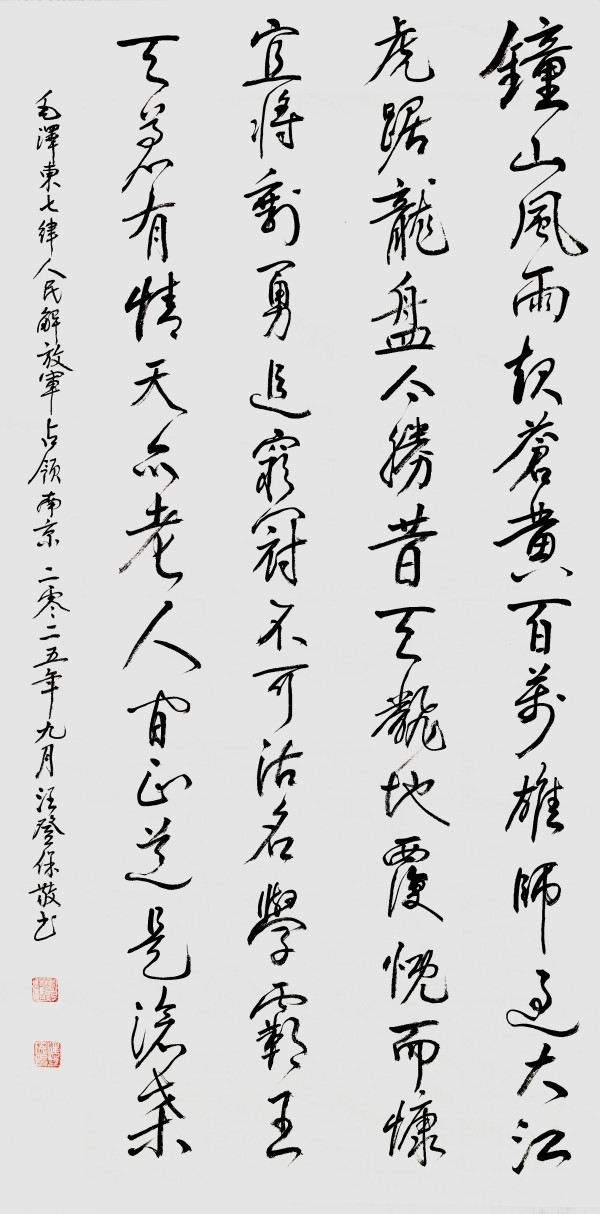 鐘山風雨起蒼黄百萬雄師過大江
虎踞龍盤今勝昔天翻地覆慨而慷
宜將剩勇追窮寇不可沽名學霸王
天若有情天亦老人間正道是滄桑
毛澤東七律人民解放軍占領南京 二零二五年九月汪登保敬书